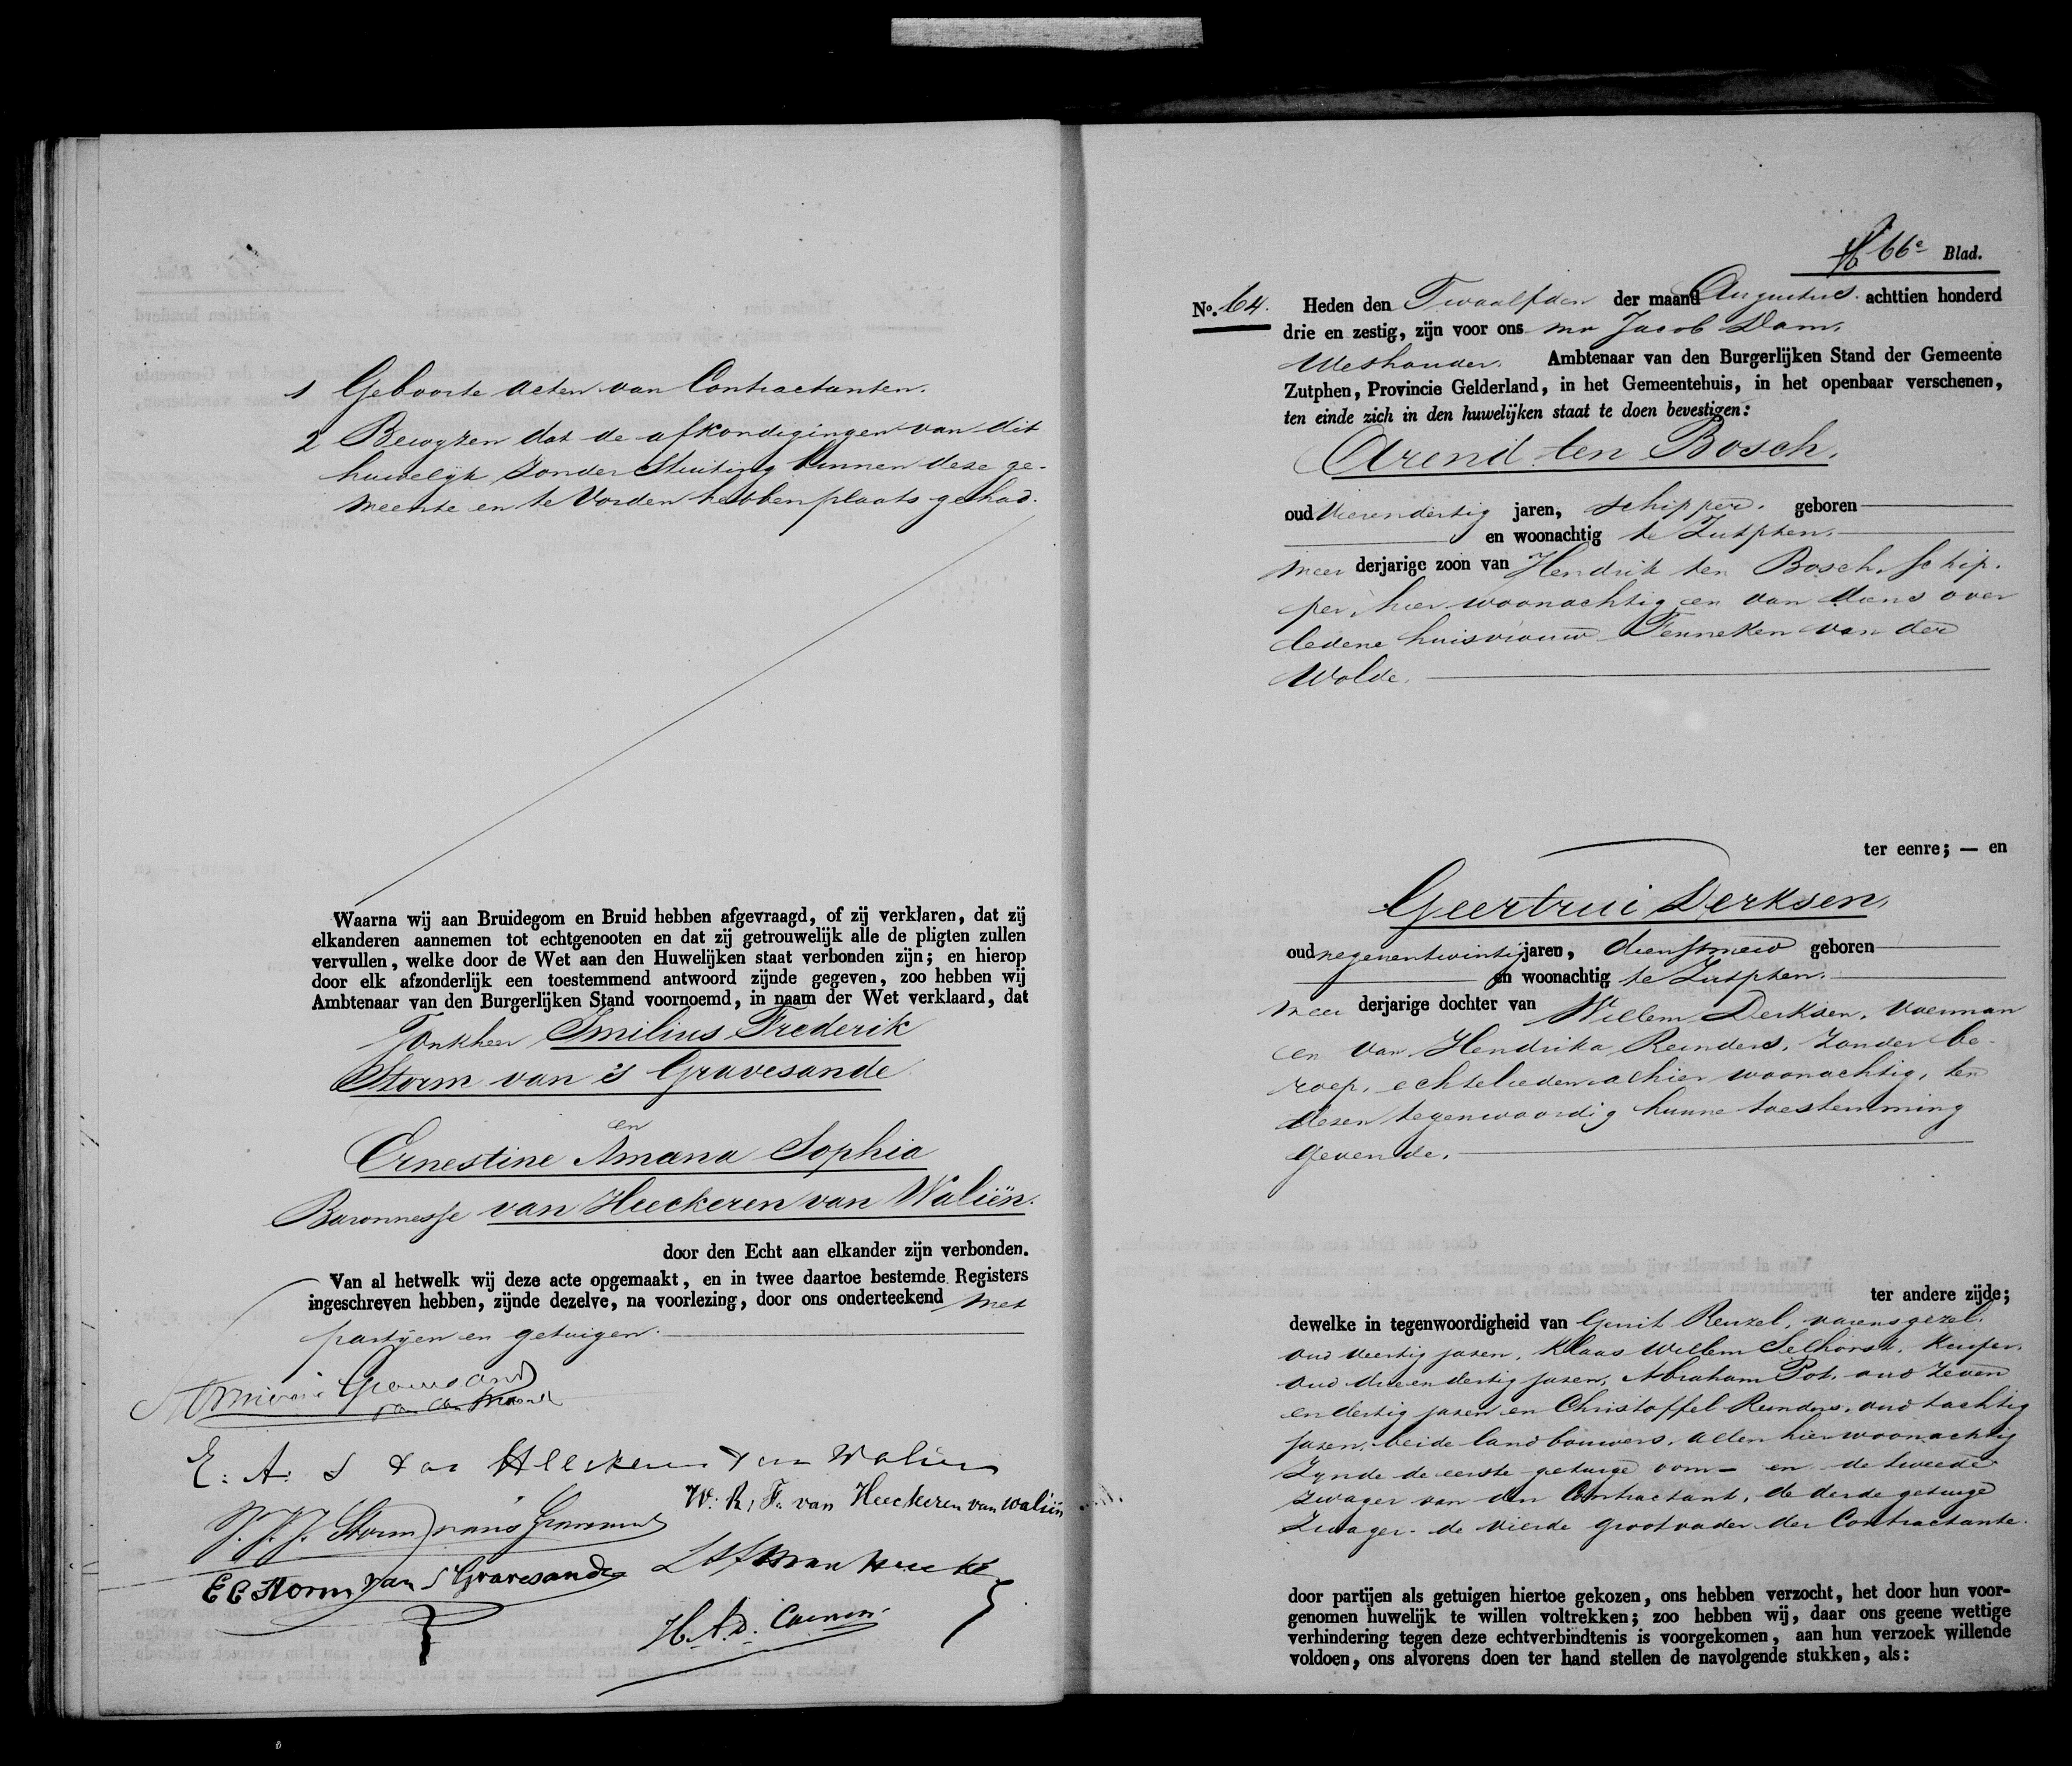 1 Geboorte acten van Contractanten.
2 Bewyzen dat de afkondigingen van dit
huwelijk zonder stuiting binnen deze ge-
meente en te Vorden hebben plaats gehad.
Waarna wij aan Bruidegom en Bruid hebben afgevraagd, of zij verklaren, dat zij
elkanderen aannemen tot echtgenooten en dat zij getrouwelijk alle de pligten zullen
vervullen, welke door de Wet aan den Huwelijken staat verbonden zijn; en hierop
door elk afzonderlijk een toestemmend antwoord zijnde gegeven, zoo hebben wij
Ambtenaar van den Burgerlijken Stand voornoemd, in naam der Wet verklaard, dat
Jonkheer Emilius Frederik
Storm van 's Gravesande
en
Ernestine Amoena Sophia
Baronnesse van Heeckeren van Waliën.
door den Echt aan elkander zijn verbonden.
Van al hetwelk wij deze acte opgemaakt, en in twee daartoe bestemde Registers
ingeschreven hebben, zijnde dezelve, na voorlezing, door ons onderteekend met
partijen en getuigen.
E: A: S van Heeckeren van Waliën
W: R: F. van Heeckeren van Waliën
Storm van 's
E C Storm van 's Gravesande
H. A. D. Coenen.
66e Blad.
No. 64. Heden den Twaalfden der maand Augustus achttien honderd
drie en zestig, zijn voor ons Mr Jacob Dam.
Meshouder. Ambtenaar van den Burgerlijken Stand der Gemeente
Zutphen, Provincie Gelderland, in het Gemeentehuis, in het openbaar verschenen,
ten einde zich in den huwelijken staat te doen bevestigen:
Arend ten Bosch.
oud vierendertig jaren, schipper. geboren
en woonachtig te Zutphen.
meer derjarige zoon van Hendrik ten Bosch, schip-
per, hier woonachtig en van diens over
ledene huisvrouw Fenneken van der
Wolde.
ter eenre; — en
Geertrui Derksen.
oud negenentwintig jaren, dienstmeid geboren
en woonachtig te Zutphen.
meer derjarige dochter van Willem Derksen, voerman
en van Hendrika Reinders, zonder be-
roep, echtelieden alhier woonachtig, ten
dezen tegenwoordig hunne toestemming
gevende.
ter andere zijde;
dewelke in tegenwoordigheid van Gerrit Renzel, varensgezel.
oud veertig jaren, Klaas Willem Selhorst, kuiper,
oud drieendertig jaren, Abraham Pot, oud zeven
endertig jaren en Christoffel Reinders, oud tachtig
jaren, beide landbouwers, allen hier woonachtig
zynde de eerste getuige oom — en de tweede
zwager van den Contractant, de derde getuige
zwager de vierde grootvader der Contractante.
door partijen als getuigen hiertoe gekozen, ons hebben verzocht, het door hun voor-
genomen huwelijk te willen voltrekken; zoo hebben wij, daar ons geene wettige
verhindering tegen deze echtverbindtenis is voorgekomen, aan hun verzoek willende
voldoen, ons alvorens doen ter hand stellen de navolgende stukken, als: